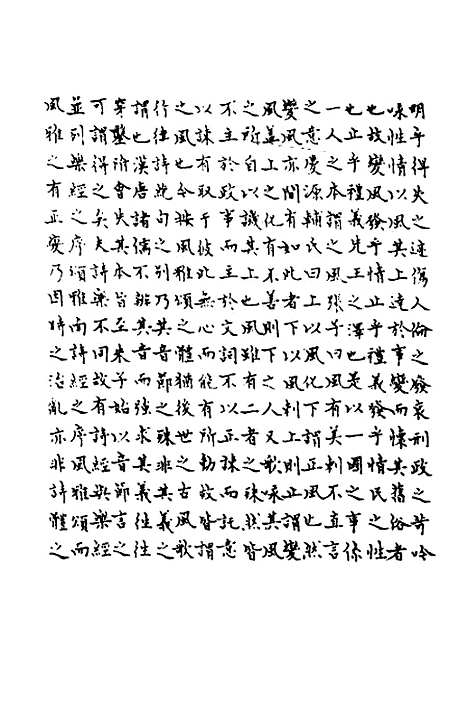 明乎得失之迹傷人倫之廢哀刑政之苛吟
咏性情以風其上達於事變而懷其舊俗者
也故變風發乎情止乎禮義發乎情民之性
也止乎禮義先王之澤也是以一國之事係
一人之本謂之風張子曰風有美刺不直言
之意慶源輔氏曰上以風化下謂正風也然
變風亦間有如此者下以風刺上則正謂變
風盖上之化有不善則下之人又歌咏其風
之所自以譏其上也風雖有二者之殊然皆
不主於政事而主於文詞不以正諫而託意
以諫有取于彼此無心而能有所動故皆謂
之風也今按風雅頌之體猶後世之古風歌
行律詩絶句之別乃其音節之殊非其義之
謂也漢唐諸儒不辨其音而強求其義往往
穿鑿所會失其本旨至朱子始以音節言之
可謂得之矣夫詩樂不同故有詩經與樂經
並列樂經之序頌雅南詩經之序風雅頌而
風雅之有正變乃因時之治亂亦非詩體之